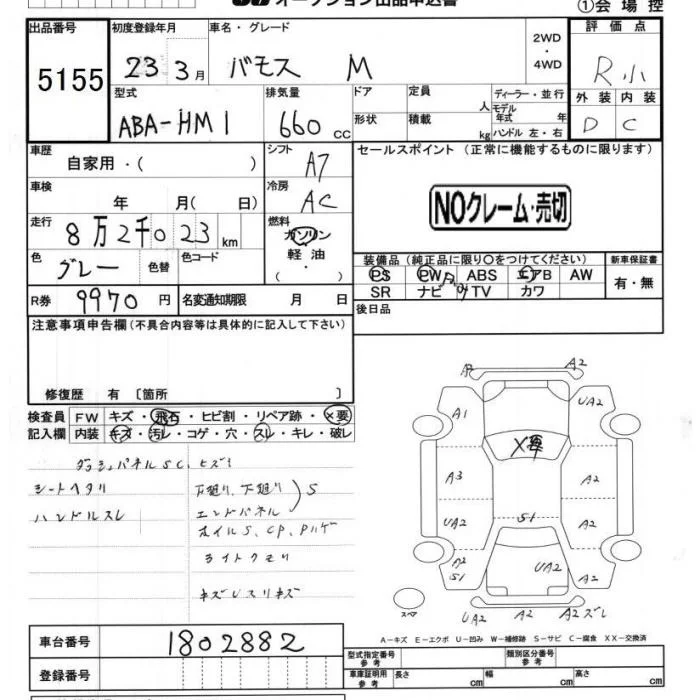 オークション出品申込書
①会 場 控
出品番号
5155
初度登録年月
23 3月
車名・グレード
バモス M
2WD
・
4WD
評 価 点
R小
型式
ABA-HM1
排気量
660 cc
ドア
定員
人
形状
積載
kg
ディーラー・並行
モデル年式 年
ハンドル 左・右
外 装 内 装
D C
車歴
自家用・( )
シフト
A7
セールスポイント (正常に機能するものに限ります)
車検
年 月( 日)
冷房
AC
NOクレーム・売切
走行
8万2千023km
燃料
ガソリン
軽 油
( )
色
グレー
色替
色コード
装備品 (純正品に限り〇をつけてください)
新車保証書
PS PW ABS エアB AW
SR ナビ TV カワ
有・無
R券
9970 円
名変通知期限 月 日
後日品
注意事項申告欄(不具合内容等は具体的に記入して下さい)
修復歴 有 〔箇所 〕
検査員
記入欄
FW キズ・飛石・ヒビ割・リペア跡・×要
内装 キズ・汚レ・コゲ・穴・スレ・キレ・破レ
シートヘタリ
ハンドルスレ
下廻り、下廻り
エンドパネル
S
ライトクモリ
A2
A2
A1
UA2
×要
A3
A2
UA2
S1
A2
A2
S1
UA2
A2
スペア
UA2
A2
A2ズレ
A-キズ E-エクボ U-凹み W-補修跡 S-サビ C-腐食 XX-交換済
車台番号
1802882
登録番号
型式指定番号
参 考
類別区分番号
参 考
車庫証明用
参 考
長さ cm
幅 cm
高さ cm